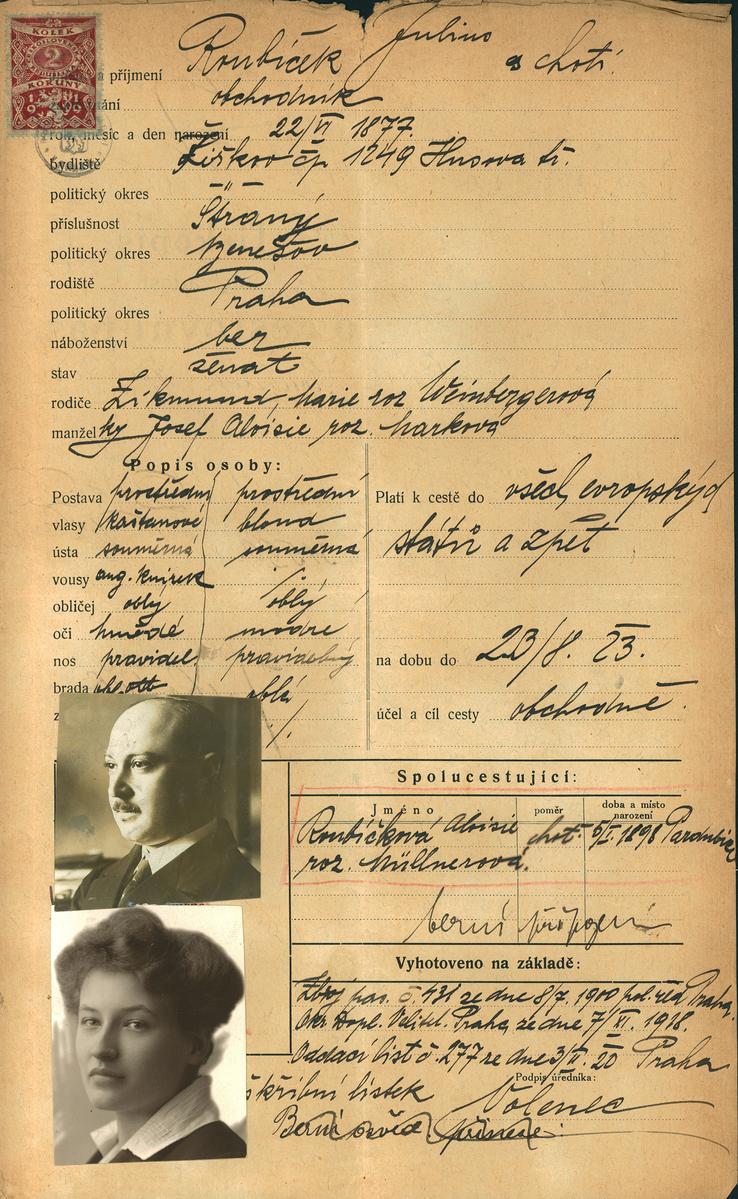 KOLEK
2
KORUNY
1919
a příjmení Roubíček Julius a chotí.
obchodník
rok, měsíc a den narození 22/VI 1877.
bydliště Žižkov čp. 1249 Husova tř.
politický okres "
příslušnost Stráný
politický okres Benešov
rodiště Praha
politický okres
náboženství bez
stav ženat
rodiče Zikmund, Marie roz Weinbergerová
manželky Josef Aloisie roz. Marková
Popis osoby:
Postava prostřední prostřední
vlasy kaštanové blond
ústa souměrná souměrná
vousy ang. knírek
obličej oblý oblý
oči hnědé modré
nos pravidel. pravidelný
brada oblá
Platí k cestě do všech evropských
států a zpět
na dobu do 23/8. 23.
účel a cíl cesty obchodně.
Spolucestující:
Jméno poměr doba a místo narození
Roubíčková Aloisie choť. 5/I. 1898 Pardubice
roz. Müllnerová.
berní
Vyhotoveno na základě:
pas. č. 431 ze dne 8/7. 1900 pol. řed. Praha.
Okr. Dopl. Velitel. Praha, ze dne 7/XI. 1918.
Oddací list č. 277 ze dne 3/II. 20 Praha
Podpis úředníka:
lístek Volenec
Berní